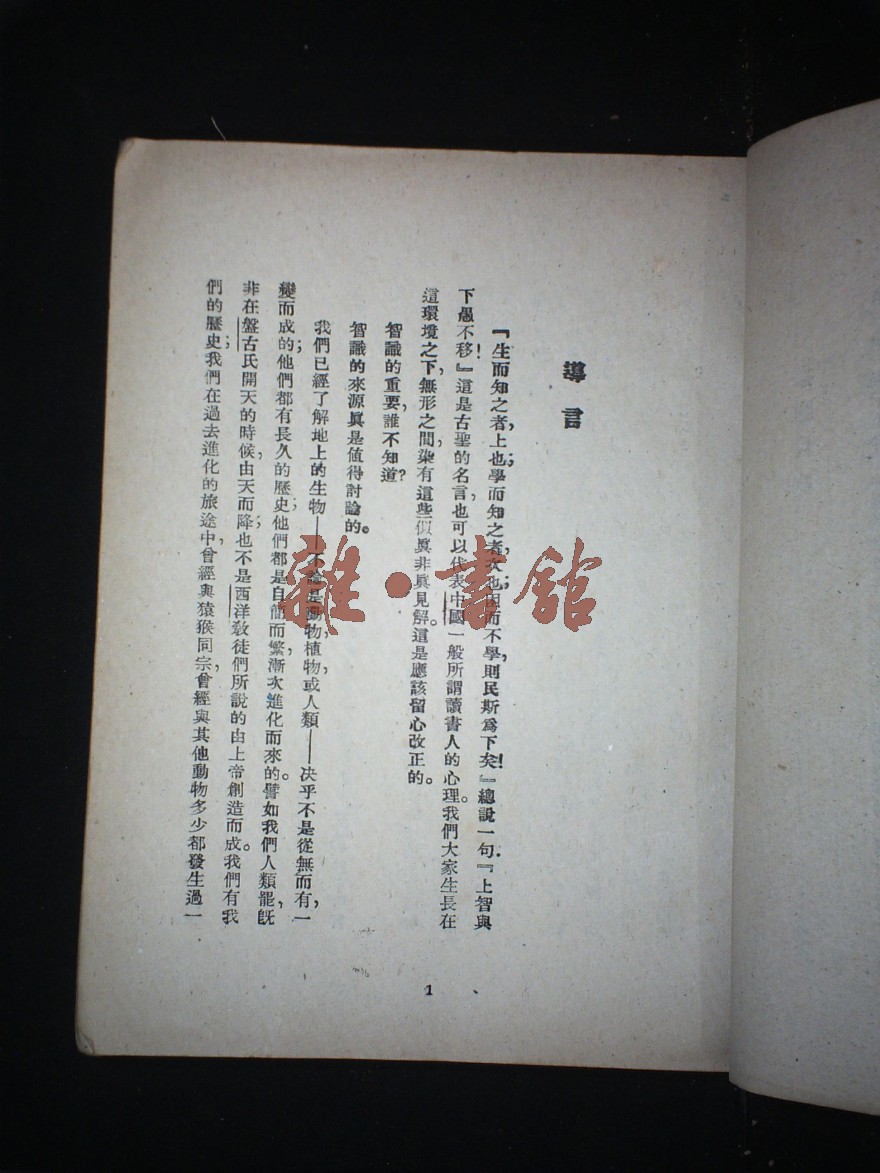 導言
『生而知之者，上也；學而知之者，次也；困而不學，則民斯爲下矣！』總說一句：『上智與
下愚不移！』這是古聖的名言，也可以代表中國一般所謂讀書人的心理。我們大家生長在
這環境之下，無形之間，染有這些似眞非眞見解。這是應該留心改正的。
智識的重要，誰不知道？
智識的來源眞是值得討論的。
我們已經了解地上的生物——不論是動物，植物，或人類——決乎不是從無而有，一
變而成的；他們都有長久的歷史；他們都是自簡而繁，漸次進化而來的。譬如我們人類罷，旣
非在盤古氏開天的時候，由天而降；也不是西洋敎徒們所說的由上帝創造而成。我們有我
們的歷史；我們在過去進化的旅途中，曾經與猿猴同宗，曾經與其他動物多少都發生過一
1
雜·書館